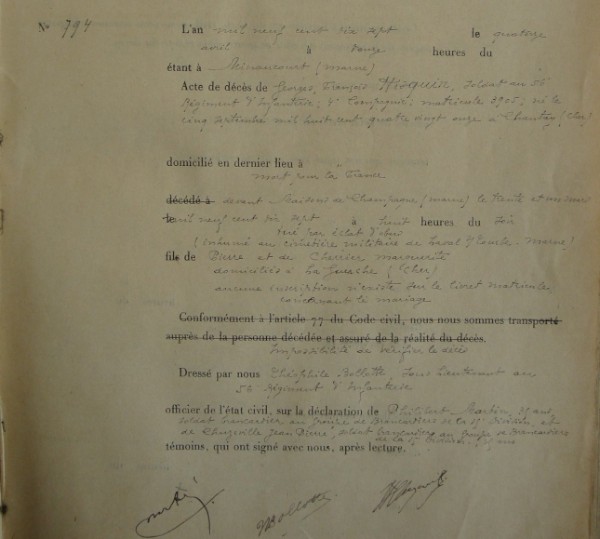 N° 794
L'an mil neuf cent dix sept le quatorze
avril à heures du
étant à Minaucourt (Marne)
Acte de décès de Georges, François soldat au
Régiment d'Infanterie; Compagnie; matricule 3905; né le
cinq septembre mil huit cent quatre vingt onze à (Cher)
domicilié en dernier lieu à
mort pour la France
décédé à devant Maisons de Champagne (Marne) le trente et un mars
le mil neuf cent dix sept à huit heures du soir
tué par éclat d'obus
(inhumé au cimetière militaire de Laval s/Tourbe. Marne)
fils de Pierre et de Cherrier marguerite
domiciliés à La Guerche (Cher)
aucune inscription n'existe sur le livret matricule
concernant le mariage
Conformément à l'article 77 du Code civil, nous nous sommes transporté
auprès de la personne décédée et assuré de la réalité du décès.
Impossibilité de vérifier le décès
Dressé par nous Théophile Bollotte, Sous Lieutenant au
Régiment d'Infanterie
officier de l'état civil, sur la déclaration de Philibert Martin, ans,
soldat brancardier au groupe de Brancardiers de la Division et
de Jean Pierre, soldat brancardier au groupe de Brancardiers
de la Division, ans
témoins, qui ont signé avec nous, après lecture.
Bollotte